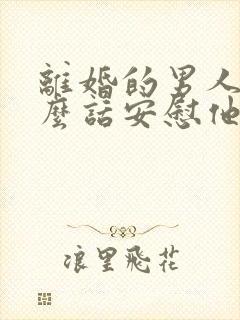 離婚的男人
麼話安慰他
浪里飛花